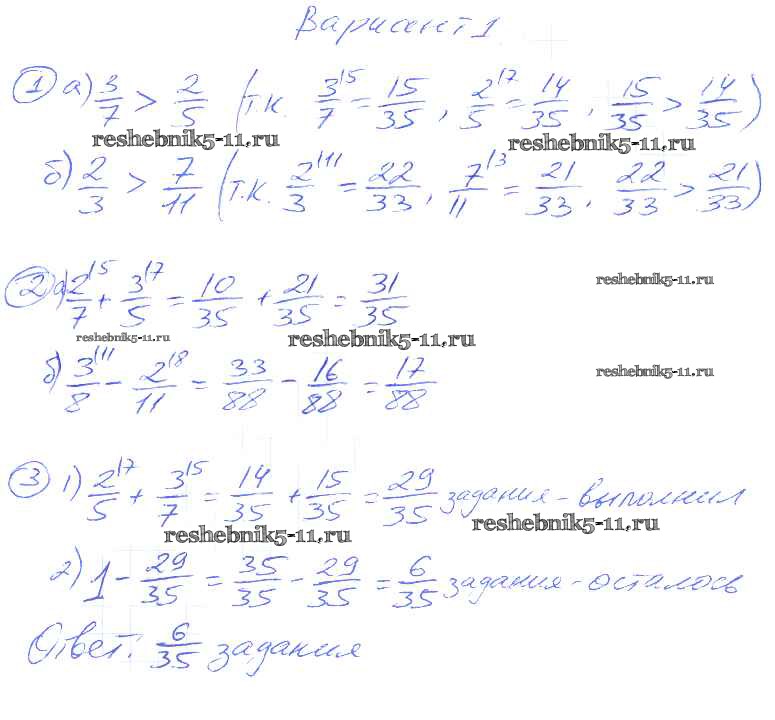 Вариант 1
① а) 3/7 > 2/5 (т.к. 3/7^|5 = 15/35, 2/5^|7 = 14/35, 15/35 > 14/35)
reshebnik5-11,ru reshebnik5-11,ru
б) 2/3 > 7/11 (т.к. 2/3^|11 = 22/33, 7/11^|3 = 21/33, 22/33 > 21/33)
② а) 2/7^|5 + 3/5^|7 = 10/35 + 21/35 = 31/35
reshebnik5-11.ru
reshebnik5-11.ru reshebnik5-11,ru
б) 3/8^|11 - 2/11^|8 = 33/88 - 16/88 = 17/88
reshebnik5-11.ru
③ 1) 2/5^|7 + 3/7^|5 = 14/35 + 15/35 = 29/35 задания - выполнил
reshebnik5-11,ru reshebnik5-11,ru
2) 1 - 29/35 = 35/35 - 29/35 = 6/35 задания - осталось
Ответ: 6/35 задания